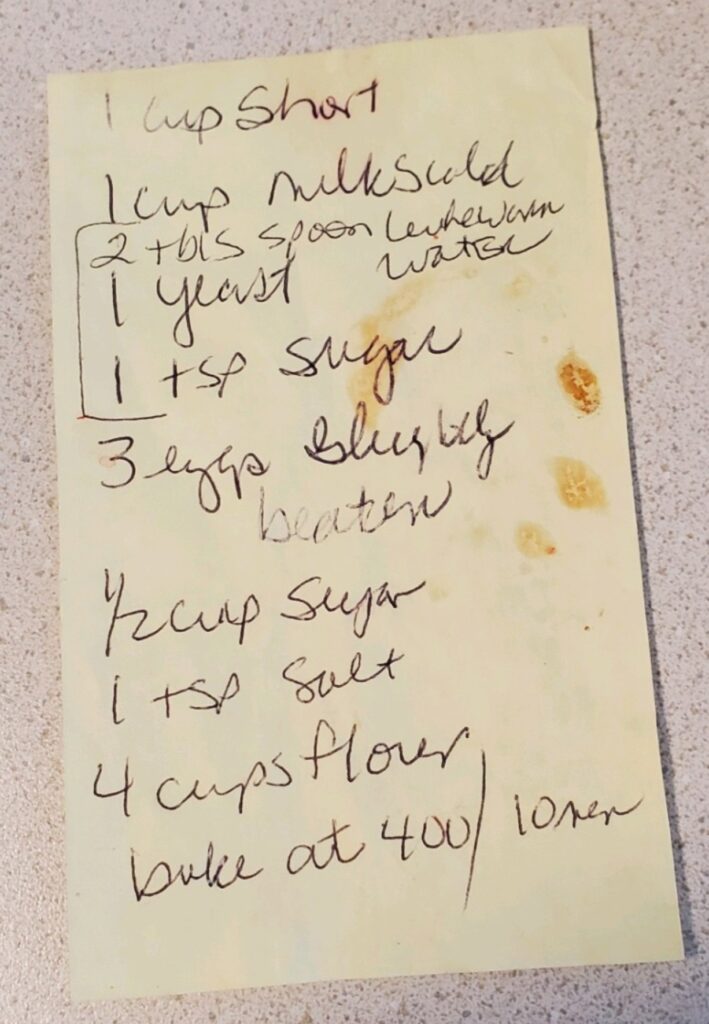 1 cup Short
1 cup milk Scald
2 tbls spoon Lewkewarm
water
1 yeast
1 tsp Sugar
3 eggs Slughtly
beaten
1/2 cup Sugar
1 tsp Salt
4 cups flour
bake at 400/10 min